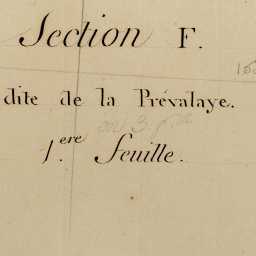 Section F.
dite de la Prévalaye.
1.ere feuille.